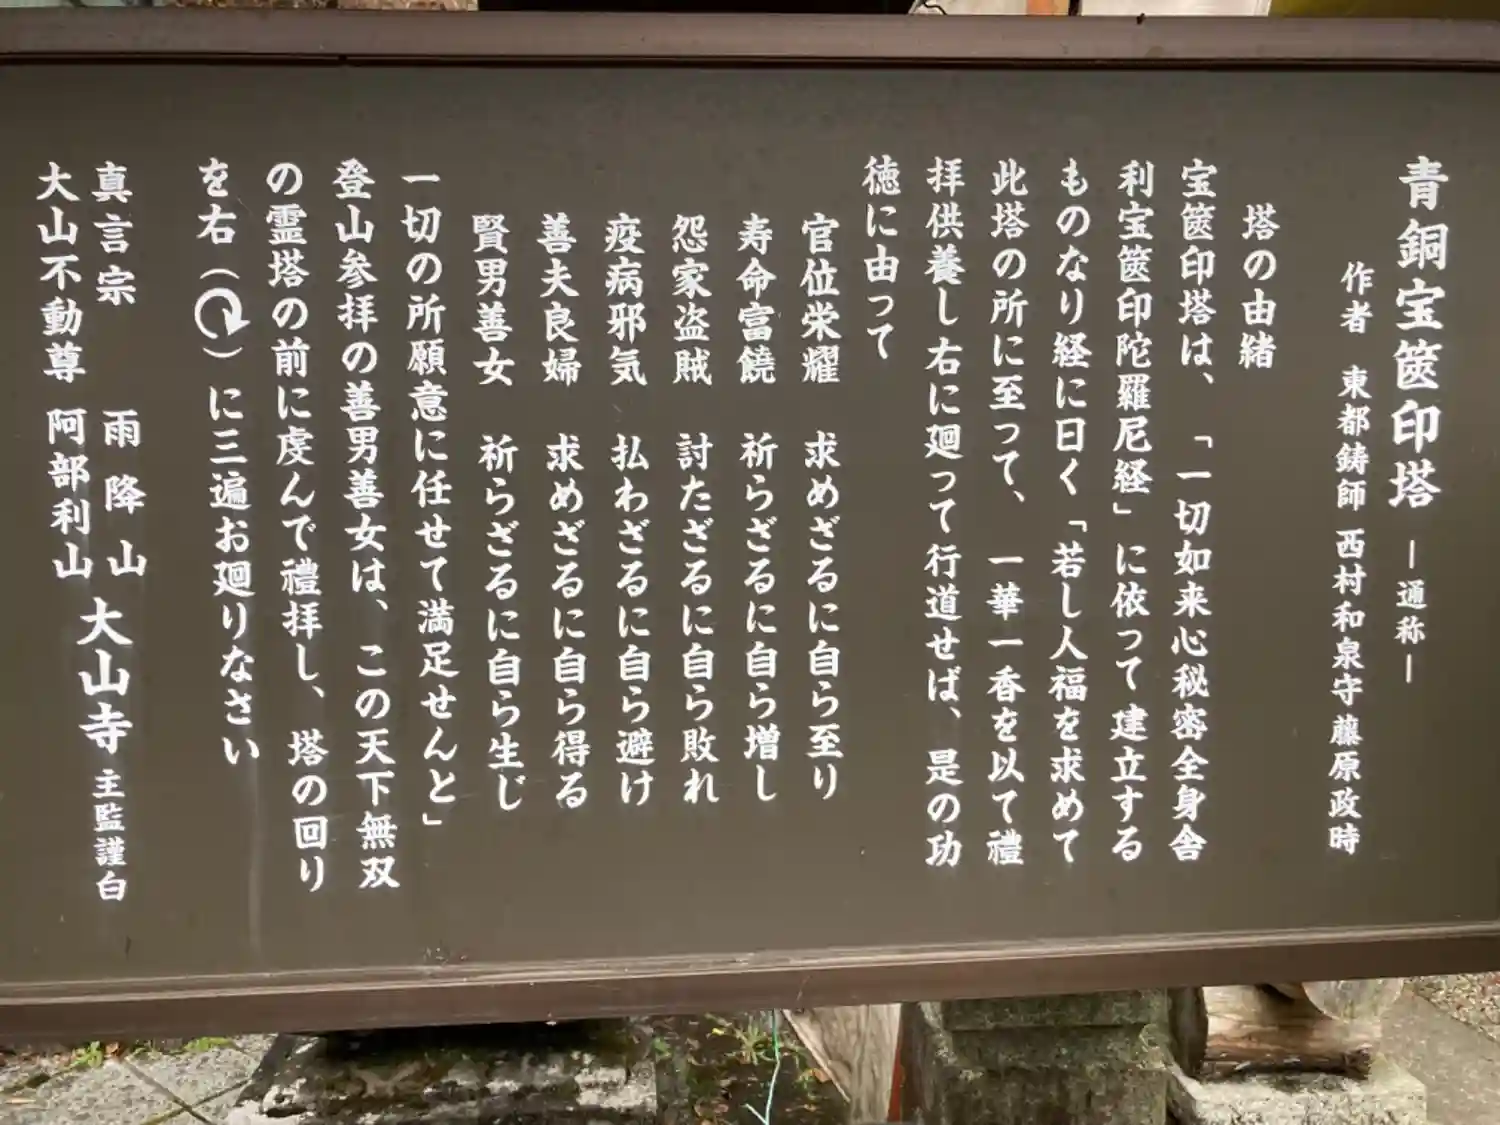 青銅宝篋印塔 ー通称ー
作者 東都鋳師 西村和泉守藤原政時
塔の由緒
宝篋印塔は、「一切如来心秘密全身舎
利宝篋印陀羅尼経」に依って建立する
ものなり経に曰く「若し人福を求めて
此塔の所に至って、一華一香を以て禮
拝供養し右に廻って行道せば、是の功
徳に由って
官位栄耀 求めざるに自ら至り
寿命富饒 祈らざるに自ら増し
怨家盗賊 討たざるに自ら敗れ
疫病邪気 払わざるに自ら避け
善夫良婦 求めざるに自ら得る
賢男善女 祈らざるに自ら生じ
一切の所願意に任せて満足せんと」
登山参拝の善男善女は、この天下無双
の霊塔の前に虔んで禮拝し、塔の回り
を右(↻)に三遍お廻りなさい
真言宗 雨降山
大山不動尊 阿部利山
大山寺 主監謹白